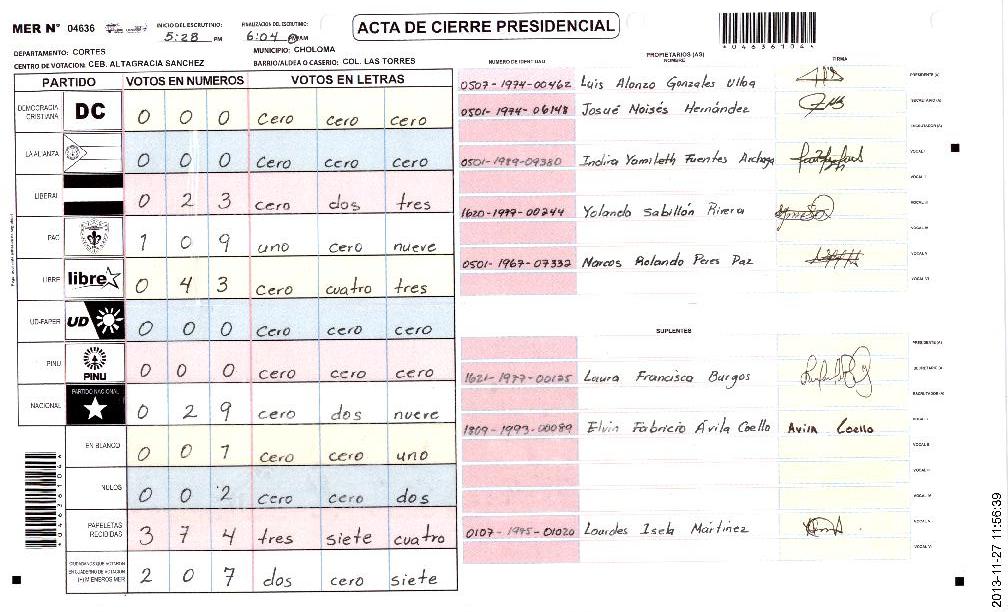 MER Nº 04636
INICIO DEL ESCRUTINIO: 5:28 PM
FINALIZACION DEL ESCRUTINIO: 6:04
ACTA DE CIERRE PRESIDENCIAL
*04636104*
DEPARTAMENTO: CORTES
MUNICIPIO: CHOLOMA
CENTRO DE VOTACION: CEB. ALTAGRACIA SANCHEZ
BARRIO/ALDEA O CASERIO: COL. LAS TORRES
PARTIDO VOTOS EN NUMEROS VOTOS EN LETRAS
DEMOCRACIA CRISTIANA DC 0 0 0 cero cero cero
LA ALIANZA 0 0 0 cero cero cero
LIBERAL 0 2 3 cero dos tres
PAC 1 0 9 uno cero nueve
LIBRE libre 0 4 3 cero cuatro tres
UD-FAPER UD 0 0 0 cero cero cero
PINU PINU 0 0 0 cero cero cero
NACIONAL PARTIDO NACIONAL 0 2 9 cero dos nueve
EN BLANCO 0 0 1 cero cero uno
NULOS 0 0 2 cero cero dos
PAPELETAS RECIBIDAS 3 7 4 tres siete cuatro
CIUDADANOS QUE VOTARON EN CUADERNO DE VOTACION (+) MIEMBROS MER 2 0 7 dos cero siete
*04636104*
PROPIETARIOS (AS)
NUMERO DE IDENTIDAD NOMBRE FIRMA
0507-1974-00462 Luis Alonzo Gonzales Ulloa PRESIDENTE (A)
0501-1974-06148 Josué Noisés Hernández SECRETARIO (A)
ESCRUTADOR (A)
0501-1989-09380 Indira Yamileth Fuentes Archaga VOCAL I
VOCAL II
1620-1977-00244 Yolando Sabillón Rivera VOCAL III
VOCAL IV
0501-1967-07332 Marcos Rolando Peres Paz VOCAL V
VOCAL VI
SUPLENTES
PRESIDENTE (A)
1621-1977-00125 Laura Francisca Burgos SECRETARIO (A)
ESCRUTADOR (A)
1809-1993-00089 Elvin Fabricio Ávila Coello Avila Coello VOCAL I
VOCAL II
VOCAL III
VOCAL IV
0107-1995-01020 Lourdes Isela Martinez VOCAL V
VOCAL VI
2013-11-27 11:56:39